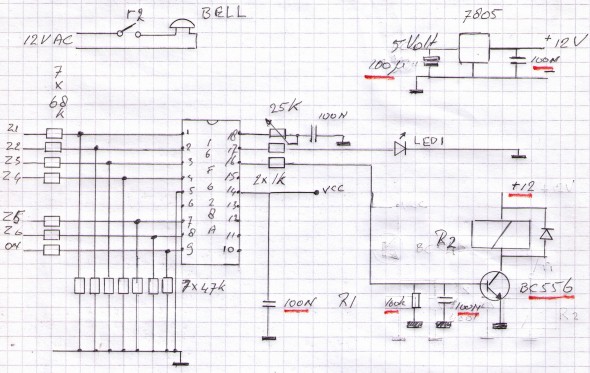 r2
BELL
12V AC
7805
5 Volt
+12V
100µ
100N
7
x
68
k
25K
100N
Z1
Z2
Z3
Z4
Z5
Z6
ON
1
2
3
4
5
6
7
8
9
16F628A
18
17
16
15
14
13
12
11
10
LED1
2x1k
VCC
+12
R2
7x47k
100N
R1
100k
100N
BC556